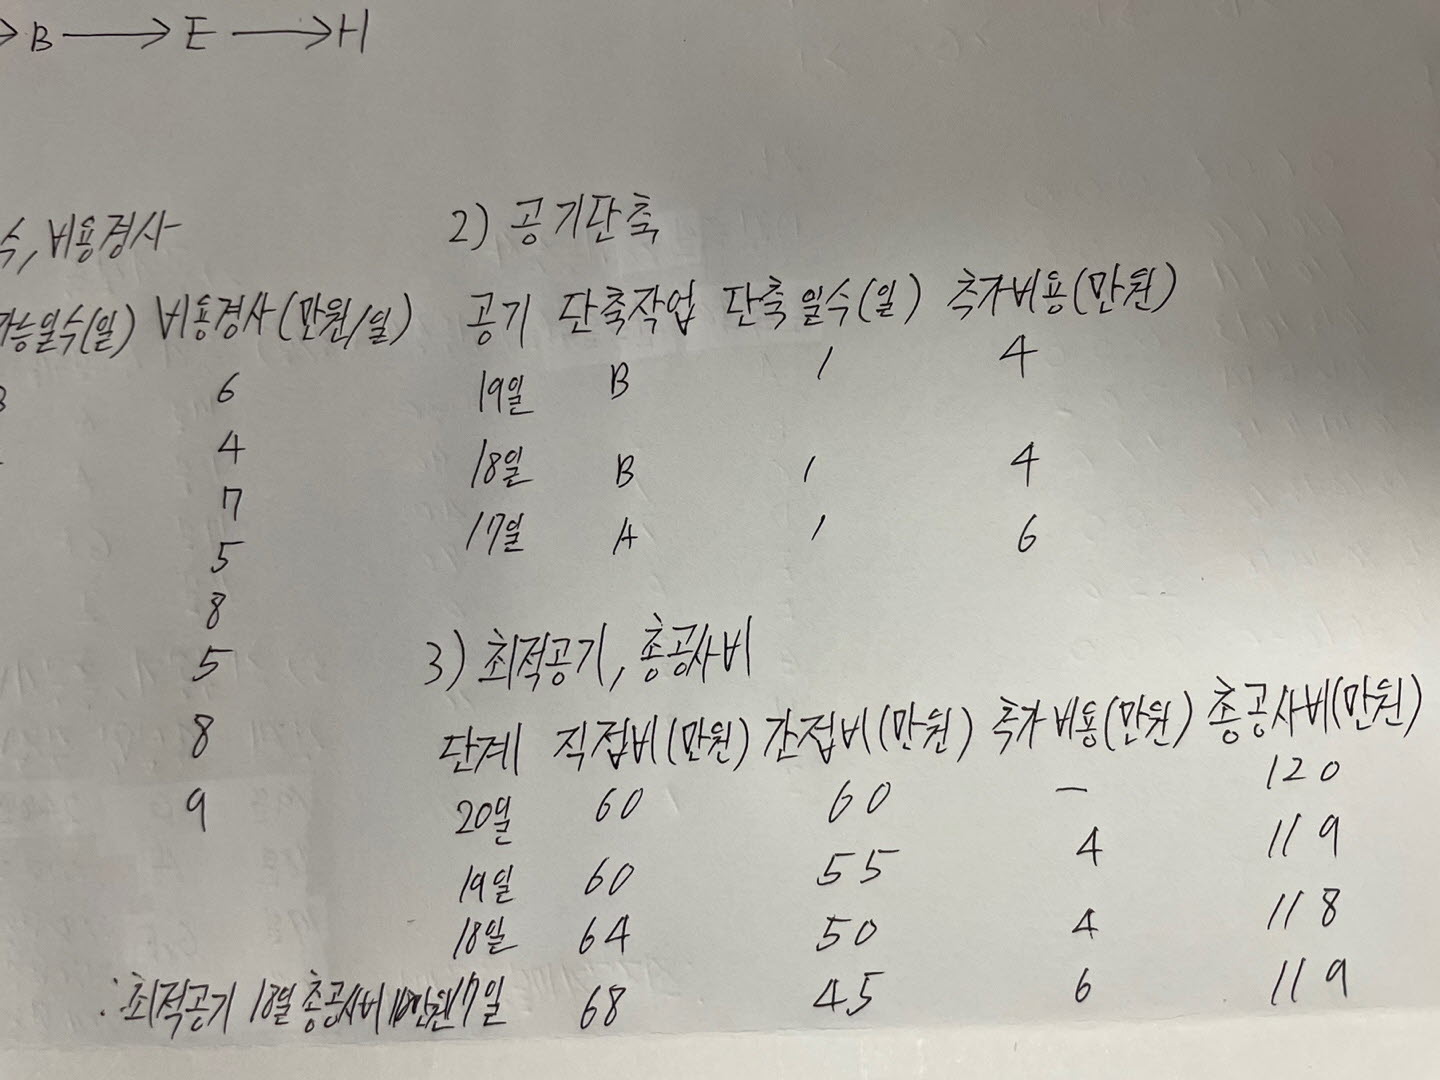 →B → E → H
수, 비용경사
가능일수(일) 비용경사(만원/일)
3 6
4
7
5
8
5
8
9
2) 공기단축
공기 단축작업 단축일수(일) 추가비용(만원)
19일 B 1 4
18일 B 1 4
17일 A 1 6
3) 최적공기, 총공사비
단계 직접비(만원) 간접비(만원) 추가비용(만원) 총공사비(만원)
20일 60 60 - 120
19일 60 55 4 119
18일 64 50 4 118
17일 68 45 6 119
∴최적공기 18일 총공사비